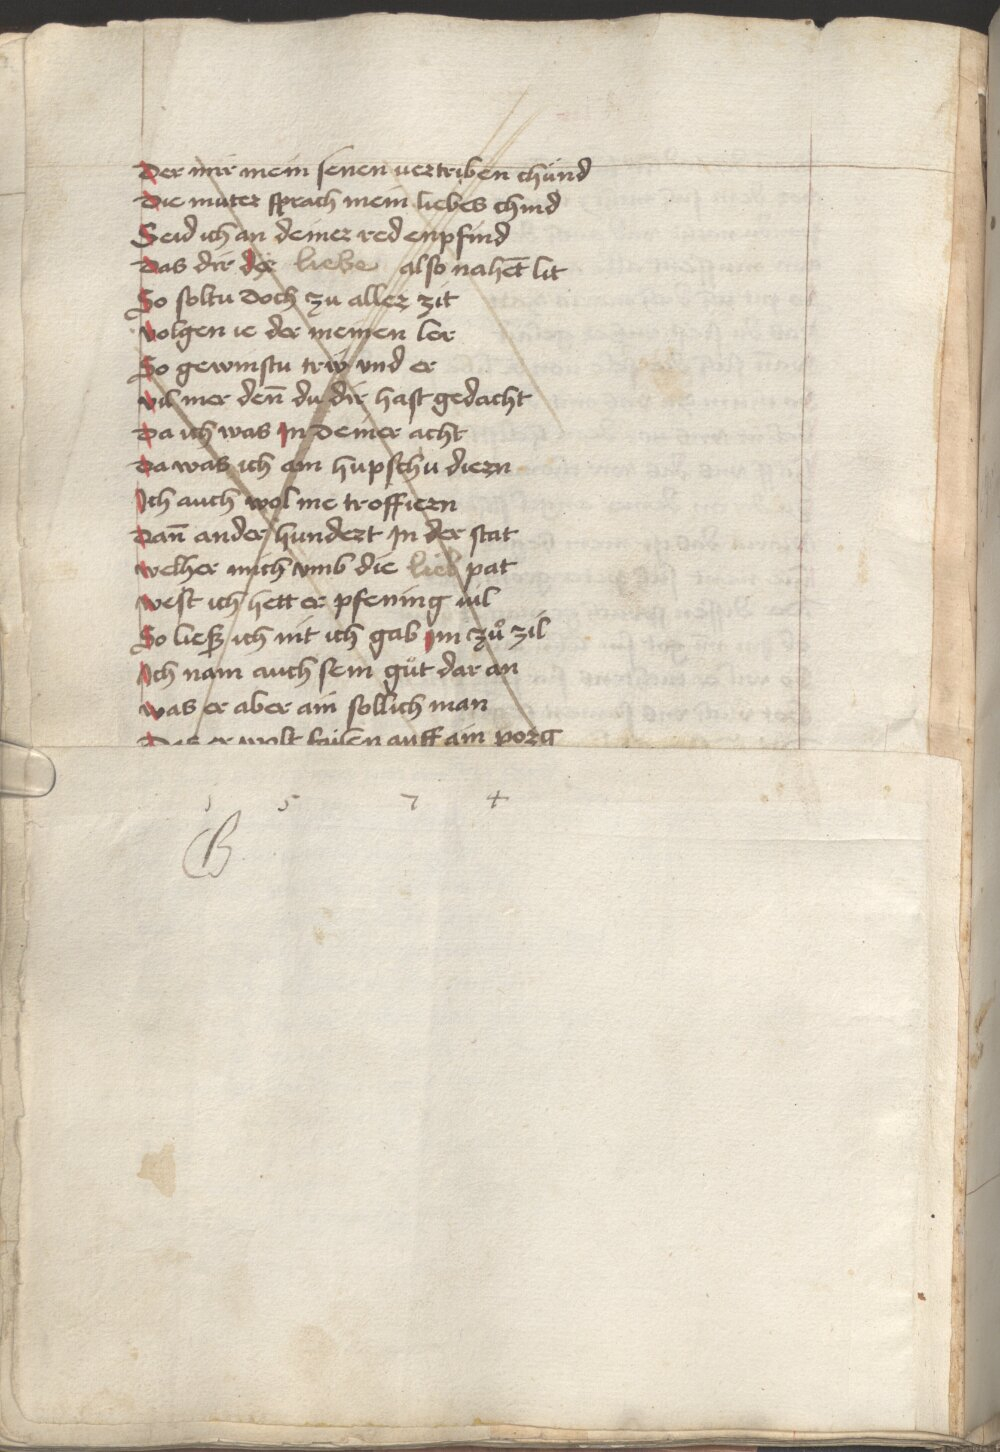 Der mir mein senen vertriben chünd
Die muter sprach mein liebes chind
Seid ich an deiner red enpfind
Das dir der liebe also nahet lit
So soltu doch zu aller zit
volgen ie der meinen ler
So gewinstu triw vnd er
vil mer den̄ du dir hast gedacht
Da ich was In deiner acht
Da was ich am hupschu diern
Ich auch wol me troffiern
Dan̄ ander hundert In der stat
welher mich vmb die lieb pat
west ich hett er pfening vil
So liesz ich nit ich gab Im zů zil
Ich nam auch sein güt dar an
was er aber ain sollich man
Das er wolt lailen auff am porg
1 5 7 4
B